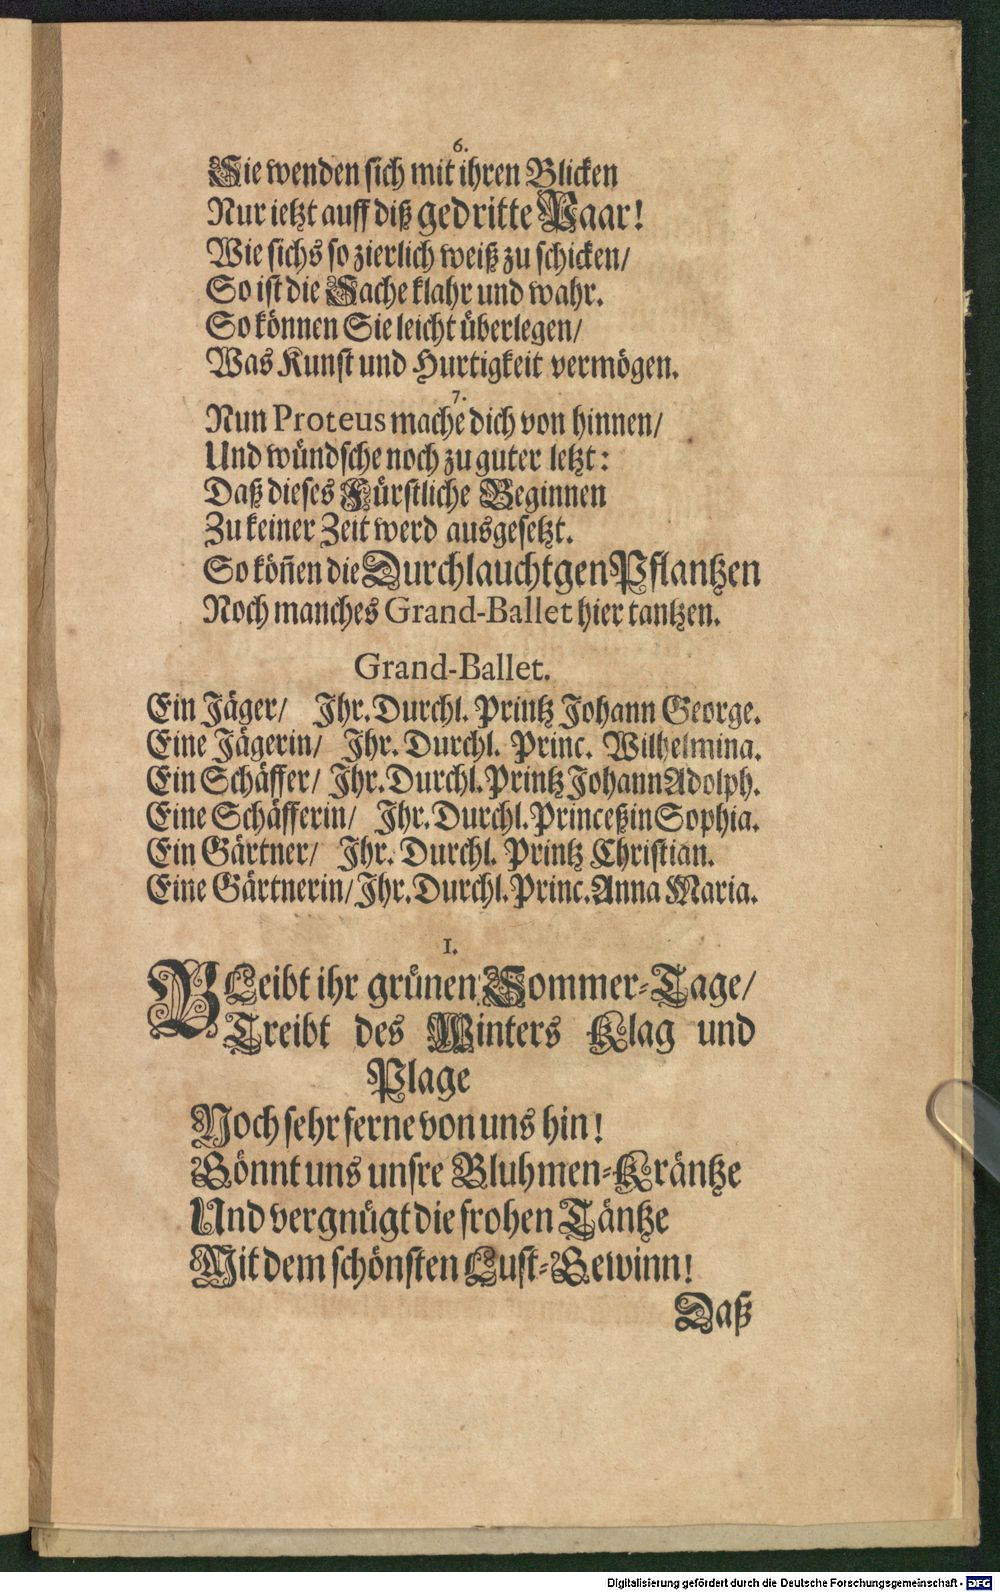 6.
Sie wenden sich mit ihren Blicken
Nur ietzt auff diß gedritte Paar!
Wie sichs so zierlich weiß zu schicken/
So ist die Sache klahr und wahr.
So können Sie leicht überlegen/
Was Kunst und Hurtigkeit vermögen.
7.
Nun Proteus mache dich von hinnen/
Und wündsche noch zu guter letzt:
Daß dieses Fürstliche Beginnen
Zu keiner Zeit werd ausgesetzt.
So köñen die Durchlauchtgen Pflantzen
Noch manches Grand-Ballet hier tantzen.
Grand-Ballet.
Ein Jäger/ Ihr. Durchl. Printz Johann George.
Eine Jägerin/ Ihr. Durchl. Princ. Wilhelmina.
Ein Schäffer/ Ihr. Durchl. Printz Johann Adolph.
Eine Schäfferin/ Ihr. Durchl. Princeßin Sophia.
Ein Gärtner/ Ihr. Durchl. Printz Christian.
Eine Gärtnerin/ Ihr. Durchl. Princ. Anna Maria.
1.
BLeibt ihr grünen Sommer-Tage/
Treibt des Winters Klag und
Plage
Noch sehr ferne von uns hin!
Gönnt uns unsre Bluhmen-Kräntze
Und vergnügt die frohen Täntze
Mit dem schönsten Lust-Gewinn!
Daß
Digitalisierung gefördert durch die Deutsche Forschungsgemeinschaft - DFG